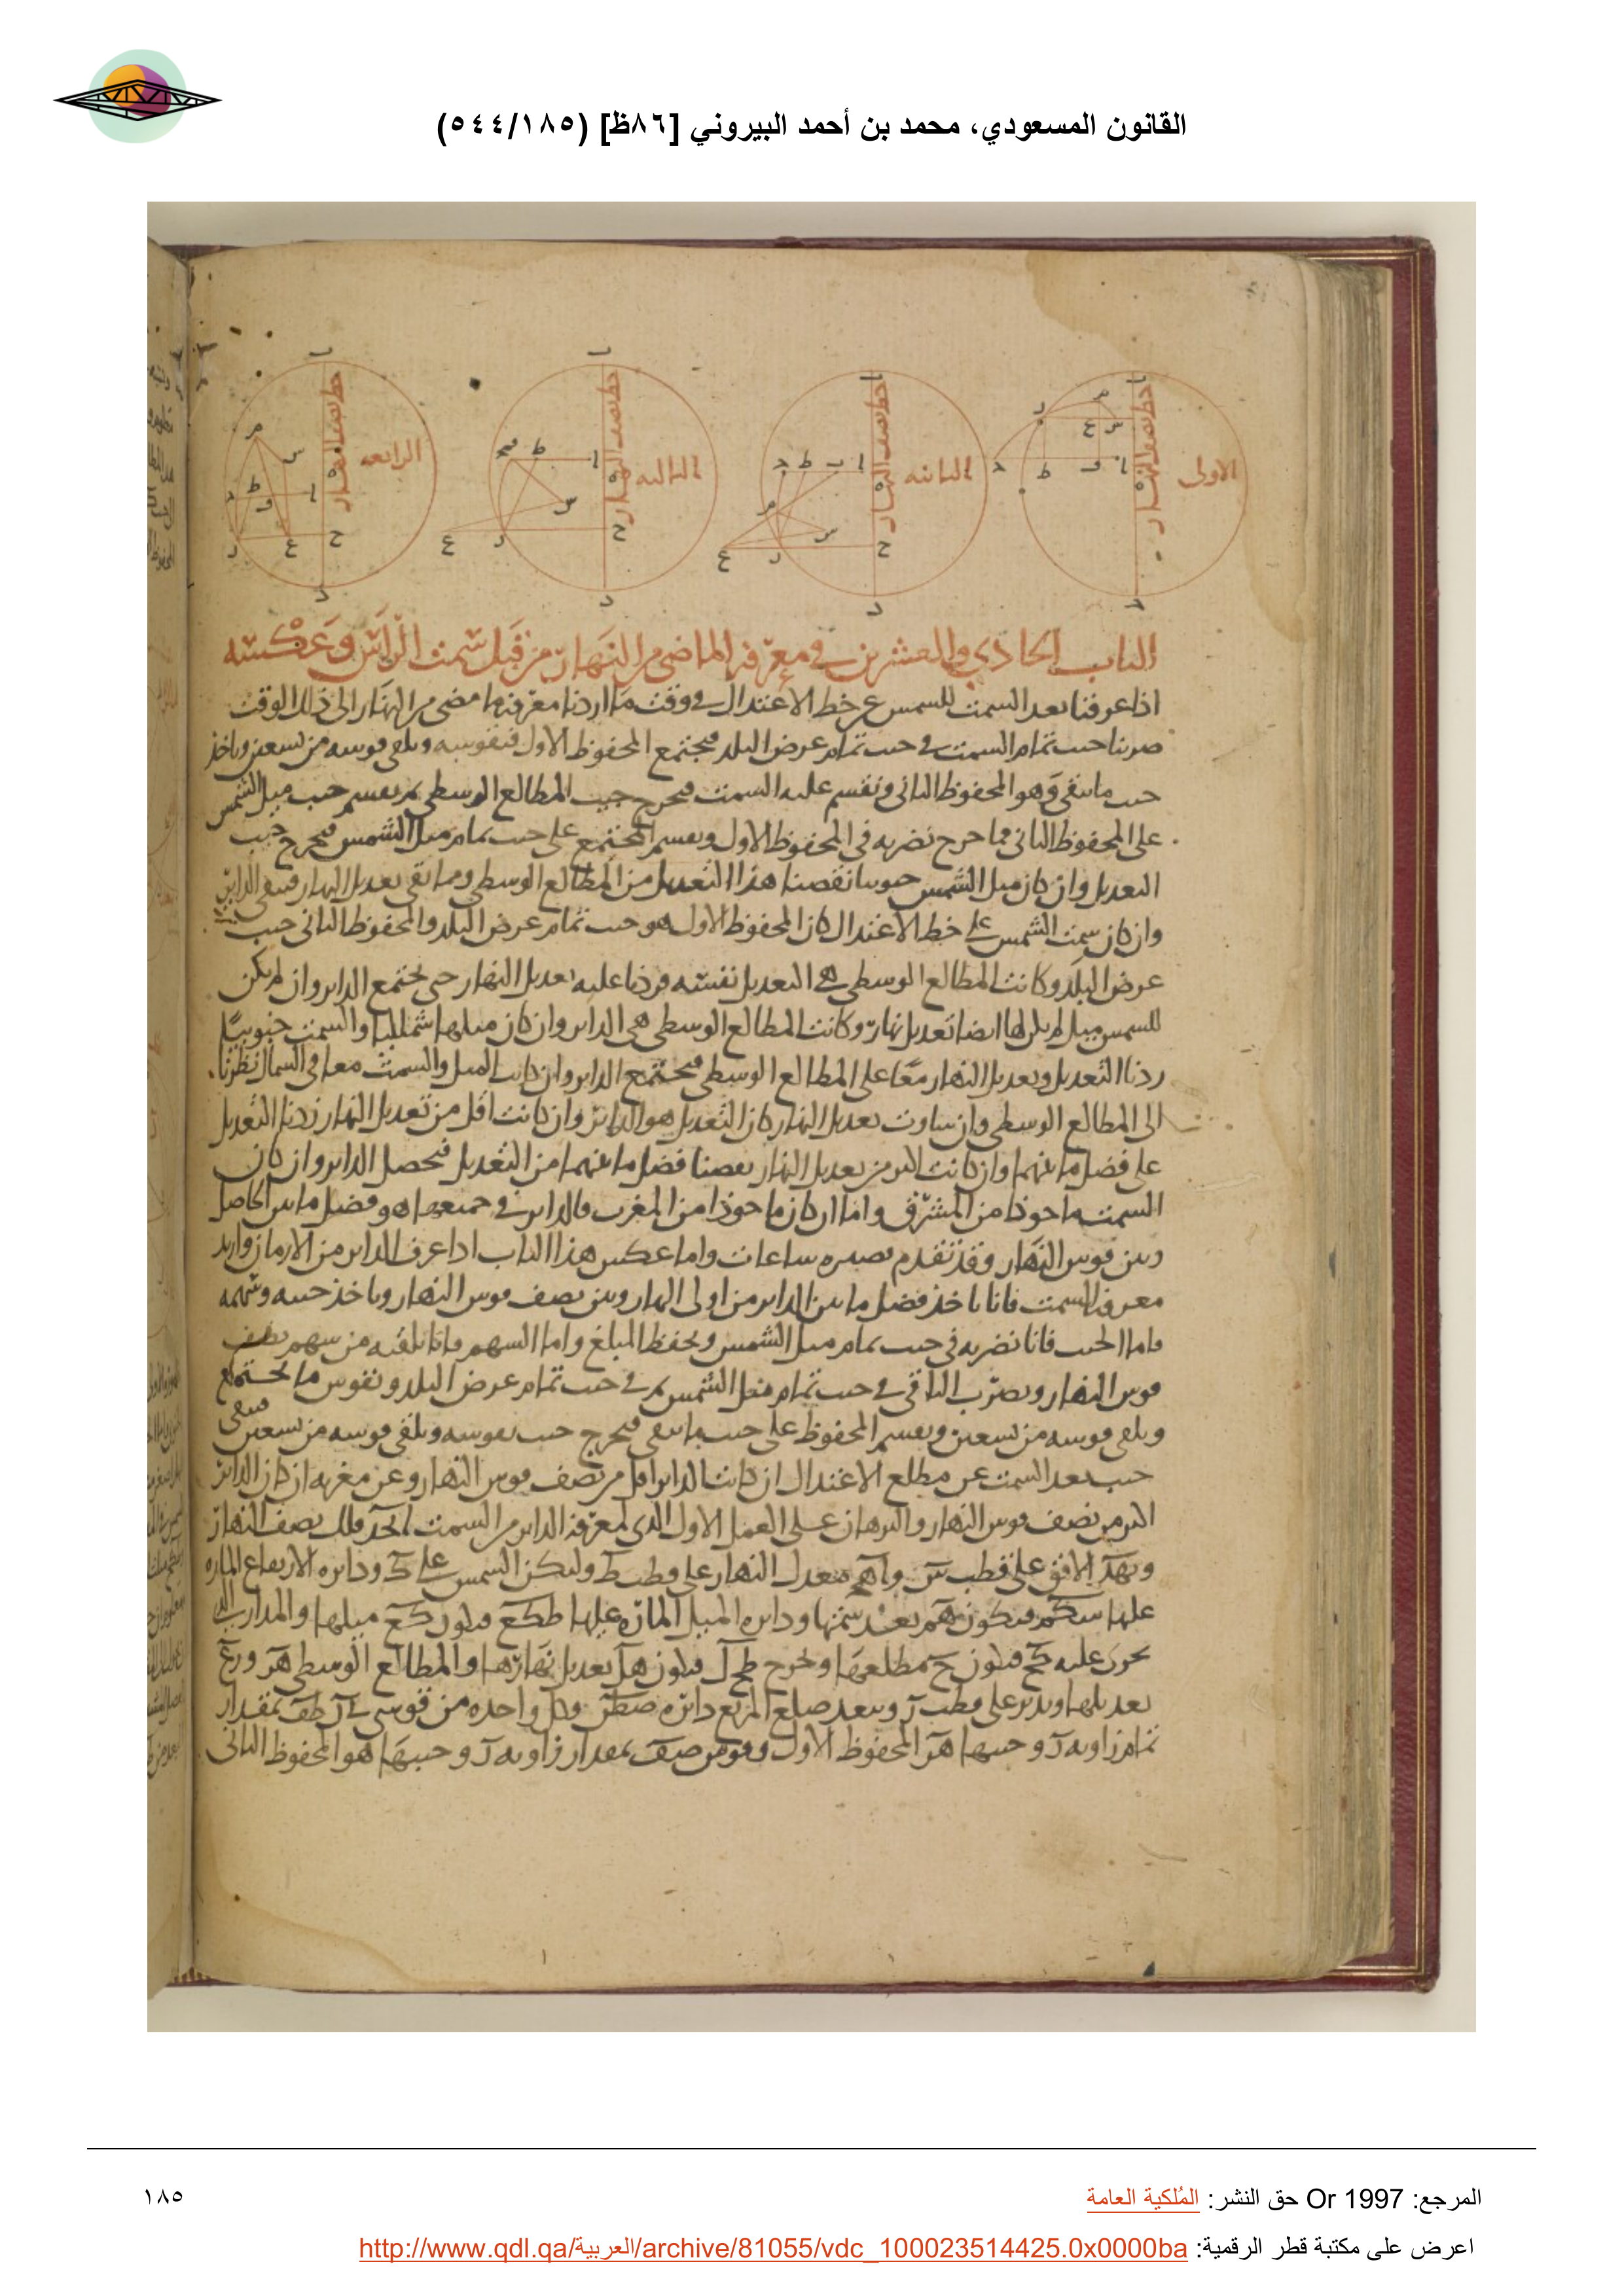 القانون المسعودي، محمد بن أحمد البيروني [٨٦ظ] (٥٤٤/١٨٥)
خط نصف النهار
خط نصف النهار
خط نصف النهار
خط نصف النهار
الاولى
الثانيه
الثالثه
الرابعه
الباب الحادي والعشرين في معرفة الماضي من النهار من قبل سمت الرأس وعكسه
اذا عرفنا بعد السمت للشمس عن خط الاعتدال في وقت ما اردنا معرفة ما مضى من النهار الى ذلك الوقت
ضربنا جيب تمام السمت في جيب تمام عرض البلد فيجتمع المحفوظ الاول فنقوسه ونلقي قوسه من تسعين وناخذ
جيب ما يبقى وهو المحفوظ الثاني ونقسم عليه السمت فيخرج جيب المطالع الوسطى ثم نقسم جيب ميل الشمس
على المحفوظ الثاني فما خرج نضربه في المحفوظ الاول ونقسم المجتمع على جيب تمام ميل الشمس فيخرج جيب
التعديل وان كان ميل الشمس جنوبيا نقصنا هذا التعديل من المطالع الوسطى وما بقي تعديل النهار فيبقى الداير
وان كان سمت الشمس على خط الاعتدال كان المحفوظ الاول هو جيب تمام عرض البلد والمحفوظ الثاني جيب
عرض البلد وكانت المطالع الوسطى هي التعديل نفسه فزدنا عليه تعديل النهار حتى يجتمع الداير وان لم يكن
للشمس ميل لم يكن لها ايضا تعديل نهار وكانت المطالع الوسطى هي الداير وان كان ميلها شماليا والسمت جنوبيا
زدنا التعديل وتعديل النهار معا على المطالع الوسطى فيجتمع الداير وان كانت الميل والسمت معا في الشمال نظرنا
الى المطالع الوسطى وان ساوت تعديل النهار كان التعديل هو الداير وان كانت اقل من تعديل النهار زدنا التعديل
على فضل ما بينهما وان كانت اكثر من تعديل النهار نقصنا فضل ما بينهما من التعديل فيحصل الداير وان كان
السمت ماخوذا من المشرق واما ان كان ماخوذا من المغرب فالداير في جميعها هو فضل ما بين الحاصل
وبين قوس النهار وقد تقدم تصييره ساعات واما عكس هذا الباب اذا عرف الداير من الازمان واريد
معرفة السمت فانا ناخذ فضل ما بين الداير من اول النهار وبين نصف قوس النهار وناخذ جيبه وسهمه
فاما الجيب فانا نضربه في جيب تمام ميل الشمس ونحفظ المبلغ واما السهم فانا نلقيه من سهم نصف
قوس النهار ونضرب الباقي في جيب تمام ميل الشمس ثم في جيب تمام عرض البلد ونقوس ما يجتمع
ونلقي قوسه من تسعين ونقسم المحفوظ على جيب ما يبقى فيخرج جيب نقوسه ونلقي قوسه من تسعين فيبقى
جيب بعد السمت عن مطلع الاعتدال ان كانت الداير اقل من نصف قوس النهار وعن مغربه ان كان الداير
اكثر من نصف قوس النهار والبرهان على العمل الاول الذي لمعرفة الداير من السمت فلك نصف النهار
الافق على قطب معدل النهار على قطب ط وليكن الشمس على ك ودائرة الارتفاع المارة
عليها فيكون بعد سمتها ودايره الميل المارة عليها طكع فيكون كع ميلها والمدار الذي
تحرك عليه فيكون مطلعها ونخرج فيكون تعديل نهارها والمطالع الوسطى
تعديلها وندير على قطب وببعد ضلع المربع دائرة وكل واحده من قوسي بمقدار
تمام زاوية وجيبها المحفوظ الاول وقوس بمقدار زاوية وجيبها هو المحفوظ الثاني
المرجع: Or 1997 حق النشر: المُلكية العامة
١٨٥
اعرض على مكتبة قطر الرقمية: http://www.qdl.qa/العربية/archive/81055/vdc_100023514425.0x0000ba